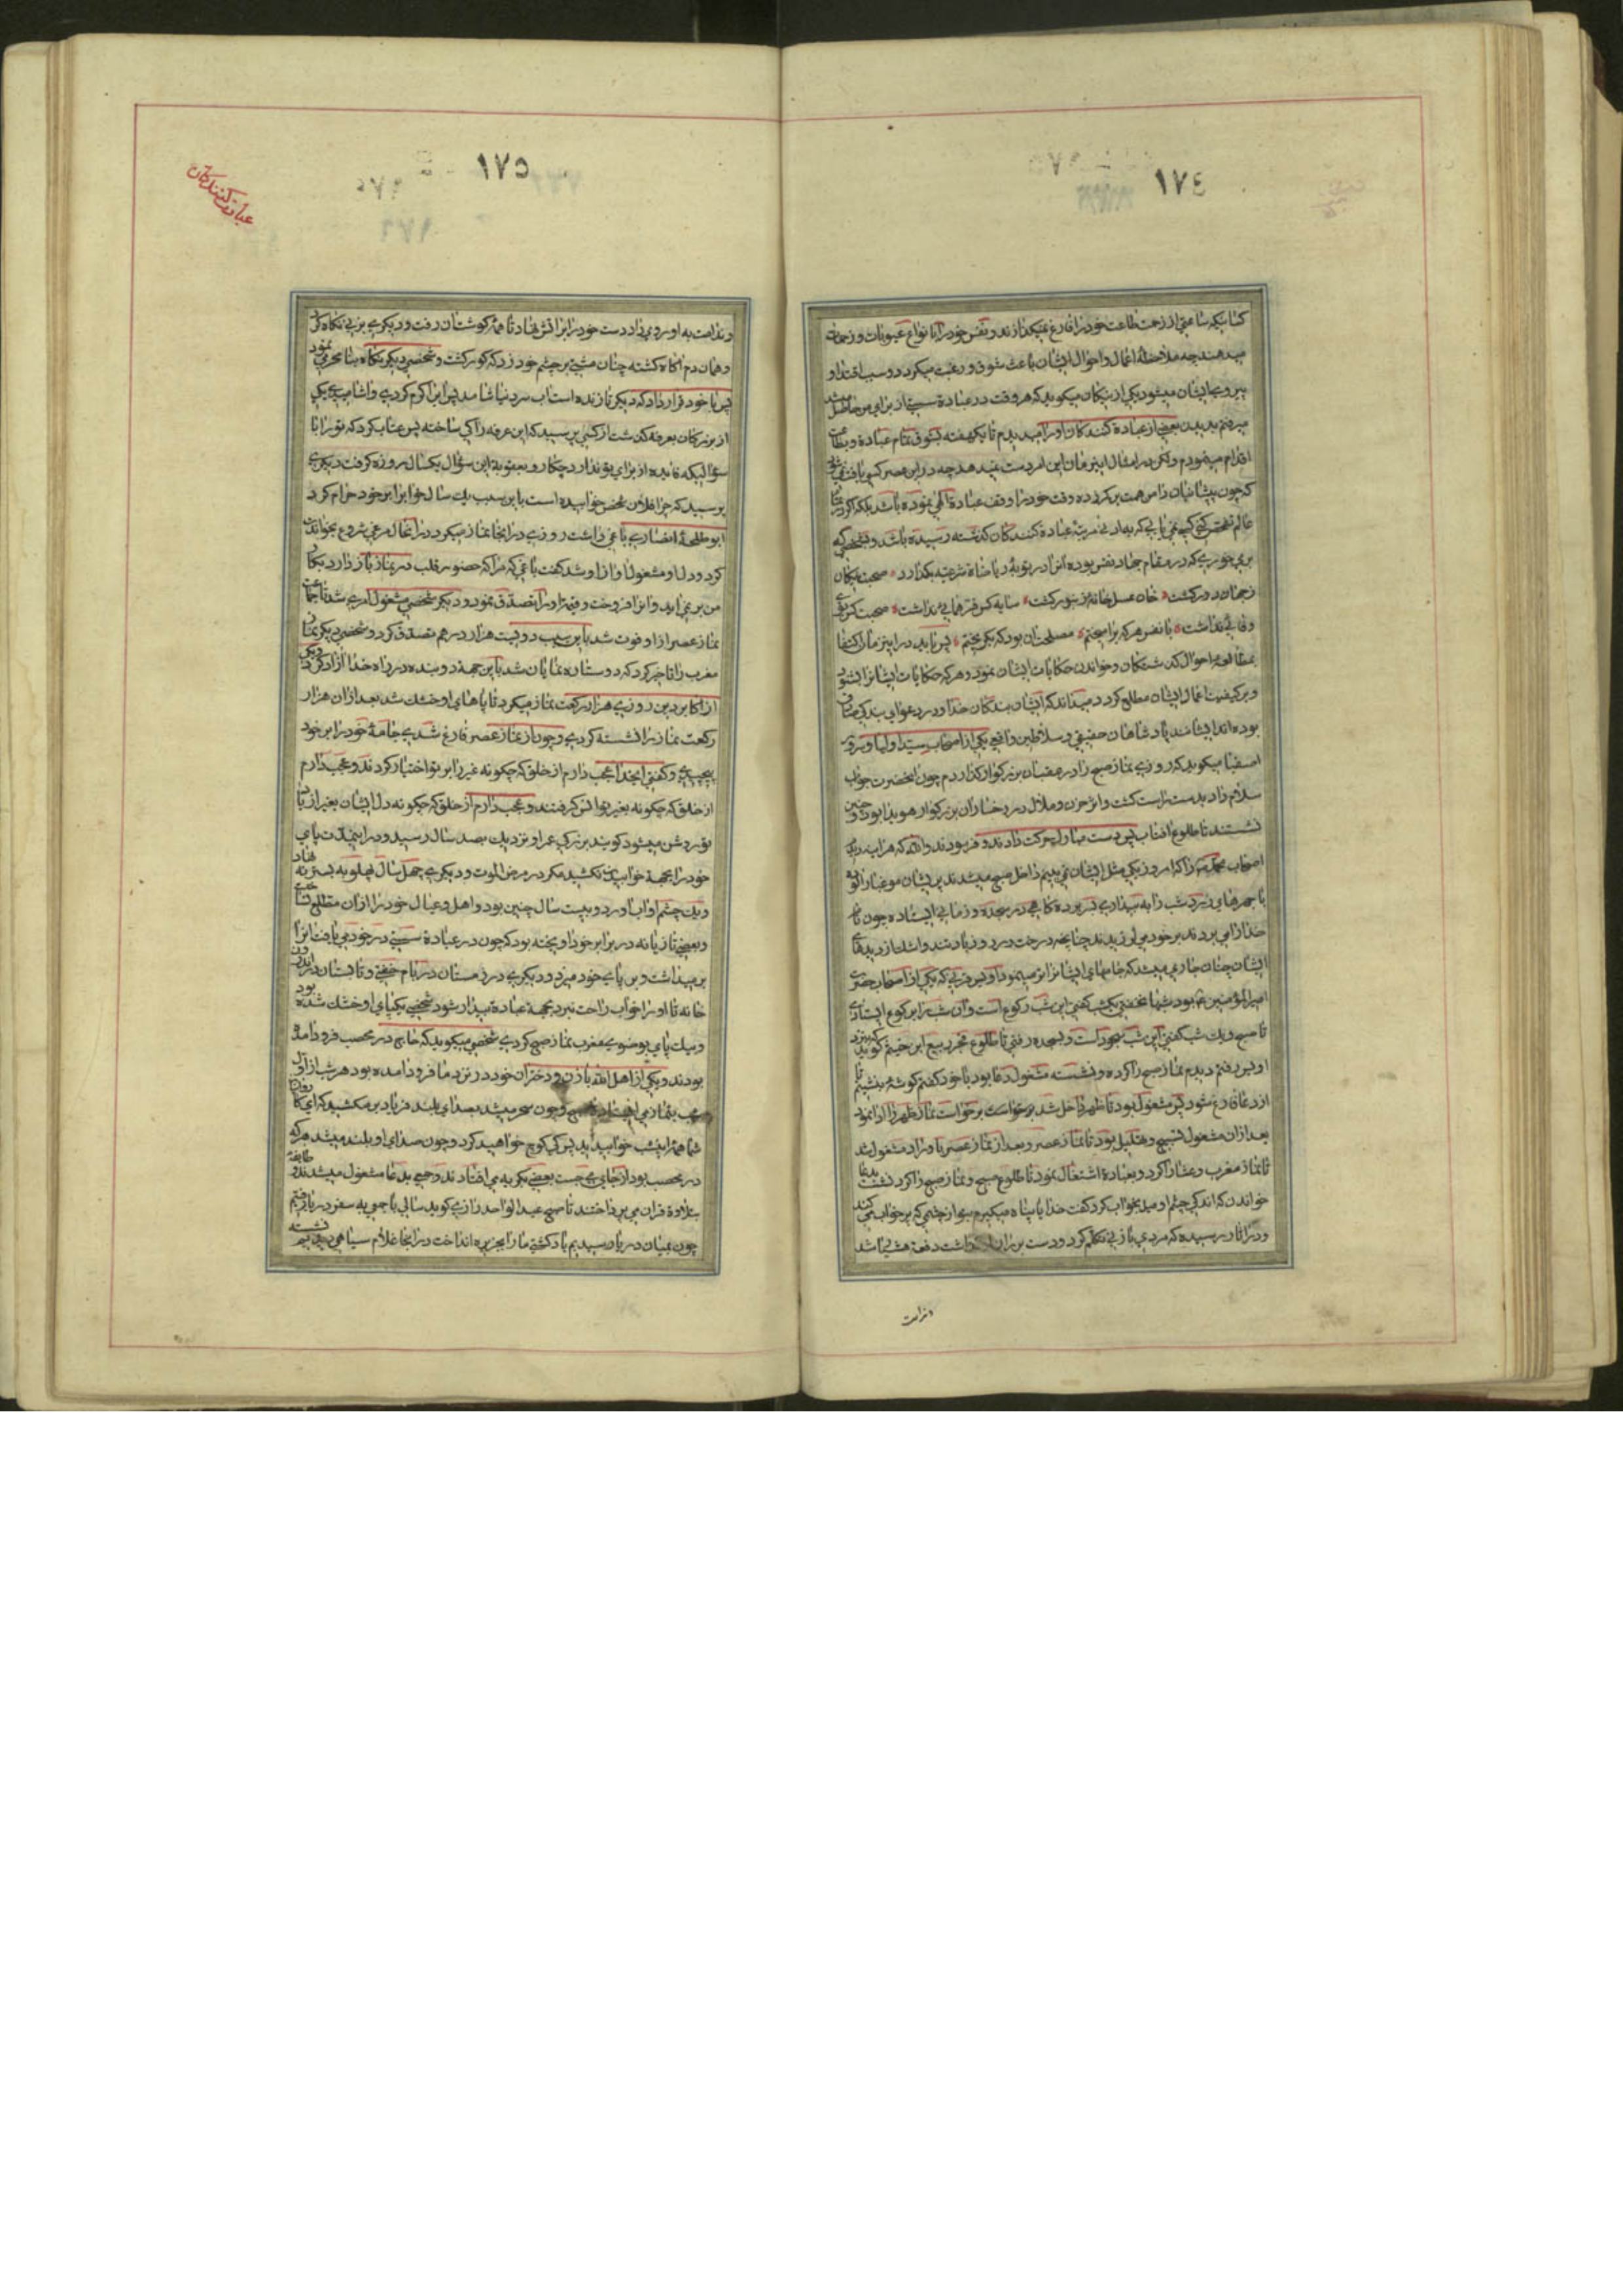 ١٧٤
کسانیکه ساعتی از زحمت طاعت خود را فارغ نمیگذارند و نفس خود را بانواع عقوبات و زحمات
میدهند چه ملاحظهٔ اعمال و احوال ایشان باعث شوق و رغبت میگردد و سبب اقتدا و
پیروی ایشان میشود یکی از نیکان میگوید که هر وقت در عبادة سستی از برای من حاصل میشد
میرفتم بدیدن بعضی از عبادة کنندکان او را میدیدم تا یکهفته بشوق تمام عبادة و بطاعت
اقدام مینمودم ولکن در امثال این زمان این امر دست نمیدهد چه در این عصر کسی یافت نمیشود
که چون پیشینیان دامن همت بر کمر زده وقت خود را وقف عبادة الهی نموده باشد بلکه اگر در
عالم تفحص کنی کسی نمی یابی که به ادنی مرتبهٔ عبادة کنندکان کذشته رسیده باشد و شخصی که
صحبت نیکان
ز جهان دور کشت * خان عسل خانهٔ زنبور کشت * سایه کس فر همایی نداشت * صحبت کس بوی
وفایی نداشت * با نفس هر که برآمیختم * مصلحت آن بود که بگریختم * پس باید در این زمان اکتفا
بمطالعهٔ احوال کذشتکان و خواندن حکایات ایشان نمود و هر که حکایات ایشانرا بشنود
و بر کیفیت اعمال ایشان مطلع گردد میداند که ایشان بندگان خدا و در دعوای بندکی صادق
بوده اند ایشانند پادشاهان حقیقی و سلاطین واقعی یکی از اصحاب سید اولیا و سرور
اصفیا میکوید که روزی نماز صبح را در عقب آن بزرکوار کذاردم چون آنحضرت جواب
سلام داد بدست راست کشت و اثر حزن و ملال در رخسار آن بزرکوار هویدا بود و چنین
نشستند تا طلوع افتاب پس دست مبارک حرکت دادند و فرمودند والله که هر آینه دیدم
اصحاب محمد را که امروز یکی مثل ایشان نمی بینم داخل صبح میشدند پریشان مو غبار آلوده
با چهرهای زرد شب را به بیداری بسر برده کاهی در سجده و زمانی ایستاده چون نام
خدا را می بردند بر خود می لرزیدند چنانچه درخت در روز باد تند و اشک از دیدهای
ایشان چنان جاری میشد که جامهای ایشانرا تر مینمود اویس قرنی که یکی از اصحاب حضرت
امیرالمؤمنین بود شبها نخفتی یکشب کفتی این شب رکوع است و آن شب را برکوع ایستادی
تا صبح و یک شب کفتی این شب سجود است و بسجده رفتی تا طلوع فجر ربیع ابن خیثم کوید که بنزد
اویس رفتم دیدم نماز صبح را کرده و نشسته مشغول دعا بود با خود کفتم کوشهٔ بنشینم تا
از دعا فارغ شود پس مشغول بود تا ظهر داخل شد برخواست نماز ظهر را ادا نمود
بعد از آن مشغول تسبیح و تهلیل بود تا نماز عصر و بعد از نماز عصر باوراد مشغول شد
تا نماز مغرب و عشا را کرد و بعبادة اشتغال نمود تا طلوع صبح و نماز صبح را کرد نشست بدعا
خواندن که اندکی چشم او میل بخواب کرد کفت خدایا پناه میکیرم بتو از چشمی که پر خواب می کند
و در آثار رسیده که مردی با زنی تکلم کرد و دست بر ران او کذاشت دفعة پشیمان شد
ندامت
١٧٥
عبادت کنندکان
و ندامت به او روی داد دست خود را بر آتش نهاد تا همهٔ کوشت آن رفت و دیگری بزنی نگاه کرد
و همان دم آگاه کشته چنان مشتی بر چشم خود زد که کور کشت و شخصی دیگر نگاه بنامحرمی نمود
پس با خود قرار داد که دیگر تا زنده است آب سرد نیاشامد پس آب را گرم کردی و آشامیدی یکی
از بزرکان بغرفهٔ کذشت از کسی پرسید که این غرفه را کی ساخته پس عتاب کرد که تو را با
سؤالیکه فایده از برای تو ندارد چکار و بعقوبة این سؤال یکسال روزه کرفت دیگری
پرسید که چرا فلان شخص خوابیده است باین سبب یک سال خواب را بر خود حرام کرد
ابوطلحهٔ انصاری باغی داشت روزی در آنجا نماز میکرد در آنحال مرغی شروع بخواندن
کرد و دل او مشغول آواز او شد کفت باغی که مرا که حضور قلب در نماز باز دارد بکار
من بر نمی اید و آنرا فروخت و قیمة او را تصدق نمود و دیگر شخصی مشغول امری شد تا جماعت
نماز عصر از او فوت شد باین سبب دویست هزار درهم تصدق کرد و شخصی دیگر نماز
مغرب را تاخیر کرد که دو ستاره نمایان شد باین جهة دو بنده در راه خدا آزاد کرد دیگری
از اکابر دین روزی هزار رکعت نماز میکرد تا پاهای او خشک شد بعد از آن هزار
رکعت نماز را نشسته کردی و چون از نماز عصر فارغ شدی جامهٔ خود را بر خود
پیچیدی و کفتی ایخدا عجب دارم از خلق که چکونه غیر را بر تو اختیار کردند و عجب دارم
از خلق که چکونه بغیر تو انس کرفتند و عجب دارم از خلق که چکونه دل ایشان بغیر از یاد
تو روشن میشود کویند بزرکی عمر او نزدیک بصد سال رسید و در این مدت پای
خود را بجهة خوابیدن نکشید مگر در مرض الموت و دیگری چهل سال پهلو به بستر ننهاد
و یک چشم او آب آورد و بیست سال چنین بود و اهل و عیال خود را از آن مطلع نساخت
و بعضی تازیانه در برابر خود آویخته بود که چون در عبادة سستی در خود می یافت آنرا
برمیداشت و بر پای خود میزد و دیگری در زمستان در بام خفتی و تابستان در اندرون
خانه تا او را خواب راحت نبرد بجهة عبادة بیدار شود شخصی یکپای او خشک شده بود
و بیک پای بوضوی مغرب نماز صبح کردی شخصی میکوید که حاج در محصب فرود آمده
بودند و یکی از اهل الله با زن و دختران خود در نزد ما فرود آمده بود هر شب از اول
شب بنماز می ایستاد و چون سحر میشد بصدای بلند فریاد بر مکشید که ای کاروان
شما همهٔ امشب خوابیدید پس کی کوچ خواهید کرد و چون صدای او بلند میشد هر که
در محصب بود از جای می جست بعضی بگریه می افتادند و جمعی بدعا مشغول میشدند و طایفهٔ
بتلاوة قرآن می پرداختند تا صبح عبدالواحد رازی کوید سالی با جمعی به سفر دریا رفتیم
چون بمیان دریا رسیدیم باد کشتی ما را بجزیره انداخت در آنجا غلام سیاهی دیدیم نشسته